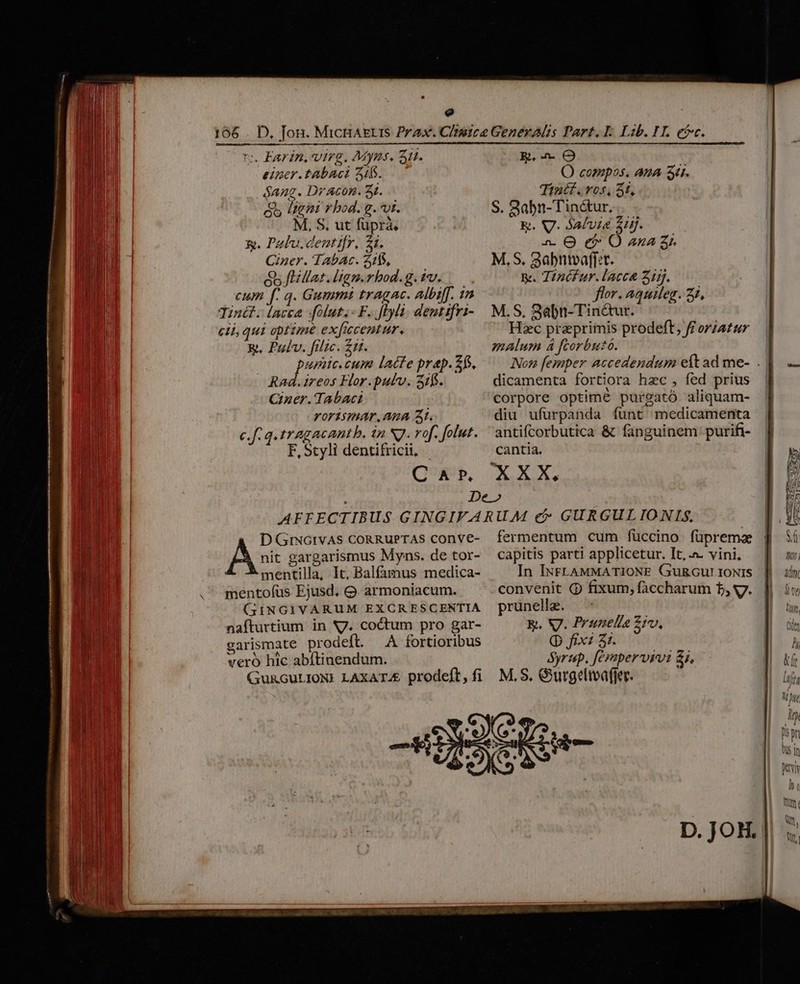 106 D. Joh. Michaelis Prax. Clinica Generalis Part. I. Lib. II. &c.
Farin. virg. Myns. ʒii.
ciner. tabaci ʒiß.
Sang. Dracon. ʒi.
ligni rhod. g. vi.
M. S. ut ſuprà.
℞. Pulv. dentifr. ʒi.
Ciner. Tabac. ʒiß.
ſtillat. lign. rhod. g. iv.
cum ſ. q. Gummi tragac. albiſſ. in
Tinct. laccæ ſolut. F. ſtyli dentifri-
cii, qui optimè exſiccentur.
℞. Pulv. ſilic. ʒii.
pumic. cum lacte præp. ʒß.
Rad. ireos Flor. pulv. ʒiß.
Ciner. Tabaci
rorismar. ana ʒi.
c. ſ. q. tragacanth. in 🜄. roſ. ſolut.
F. Styli dentifricii.
℞. 🜍
🜔 compos. ana ʒii.
Tinct. ros. ʒi.
S. Zahn-Tinctur.
℞. 🜄. Salviæ ℥iij.
& 🜔 ana ʒi.
M. S. Zahnwaſſer.
℞. Tinctur. laccæ ʒiij.
flor. aquileg. ʒi.
M. S. Zahn-Tinctur.
Hæc præprimis prodeſt, ſi oriatur
malum à ſcorbuto.
Non ſemper accedendum eſt ad me-
dicamenta fortiora hæc, ſed prius
corpore optimè purgatô aliquam-
diu uſurpanda ſunt medicamenta
antiſcorbutica & ſanguinem purifi-
cantia.
Cap. XXX.
De
AFFECTIBUS GINGIVARUM & GURGULIONIS.
AD Gingivas corruptas conve-
nit gargarismus Myns. de tor-
mentilla, It. Balſamus medica-
mentoſus Ejusd. armoniacum.
Gingivarum excrescentia
naſturtium in 🜄. coctum pro gar-
garismate prodeſt. A fortioribus
verò hîc abſtinendum.
Gurgulioni laxatæ prodeſt, ſi
fermentum cum ſuccino ſupremæ
capitis parti applicetur. It. vini.
In Inflammatione Gurgulionis
convenit 🜕 fixum, ſaccharum ♄, 🜄.
prunellæ.
℞. 🜄. Prunellæ ℥iv.
🜕 fixi ʒi.
Syrup. ſempervivi ℥i.
M. S. Gurgelwaſſer.
D. JOH.